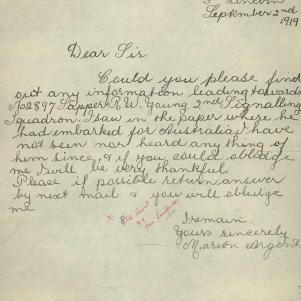 Lincoln
September 2nd
1919
Dear Sir
Could you please find
out any information leading towards
No 2897 Sapper R. W. Young 2nd Signalling
Squadron. I saw in the paper where he
had embarked for Australia, I have
not seen nor heard anything of
him since, & if you could obledge
me I will be very thankful.
Please if possible return answer
by next mail & you will obledge
me
I remain
Yours sincerely
Marion